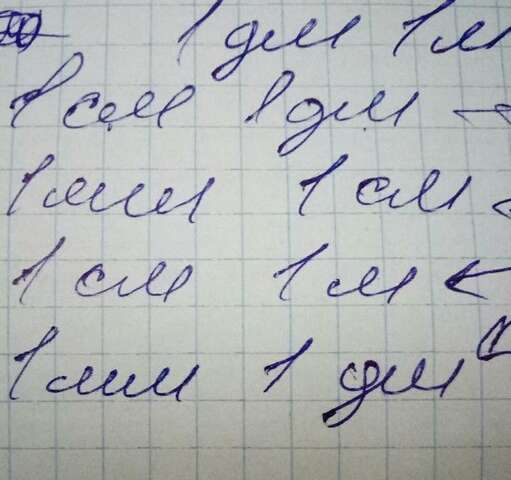 1 дм 1 м
1 см 1 дм
1 мм 1 см
1 см 1 м
1 мм 1 дм